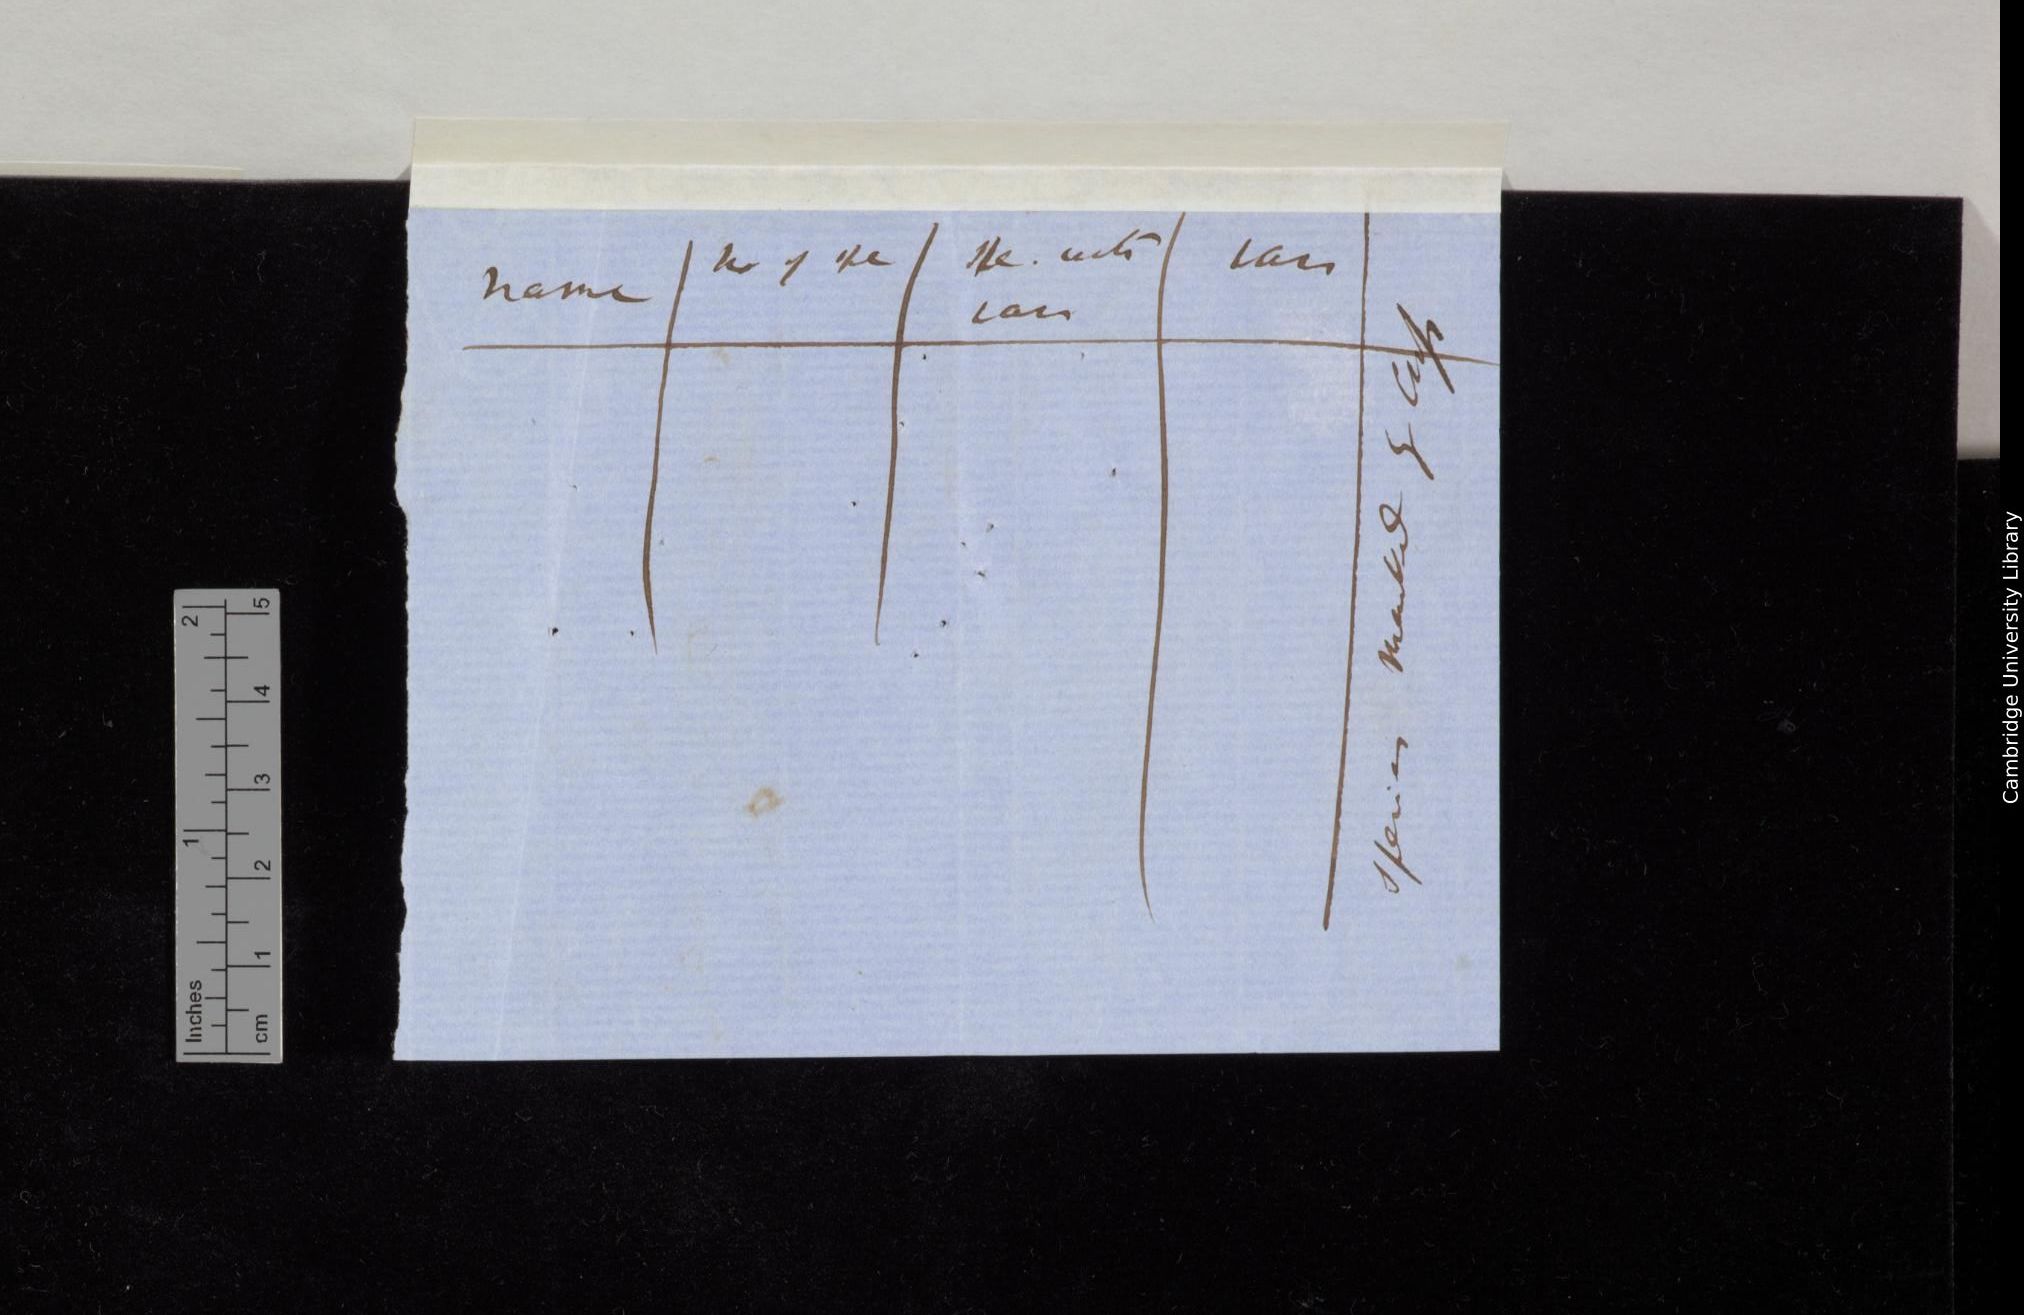 Name
No of spe
spe. with
vars
vars
Species marked by
Inches
1
2
cm
1
2
3
4
5
Cambridge University Library